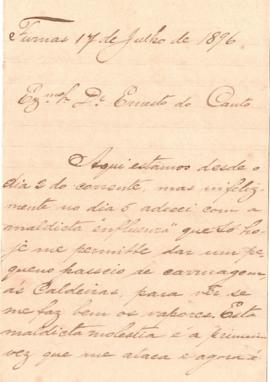 Furnas 17 de Julho de 1896
Ex.mo Sr. Dr. Ernesto do Canto
Aqui estamos desde o
dia 2 do corrente, mas infeliz-
mente no dia 5 adoeci com a
maldicta "influenza" que só ho-
je me permitte dar um pe-
queno passeio de carruagem
ás Caldeiras, para vêr se
me faz bem os vapores. Esta
maldicta molestia é a primeira
vez que me ataca e agora é